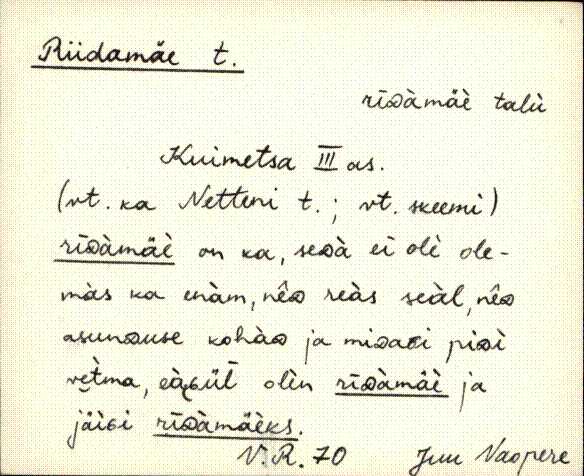 Riidamäe t.
rīᴅàmäè talù
Kuimetsa III as.
(vt. ka Netteni t.; vt. skeemi)
rīᴅàmäè on ka, seᴅà ei olè ole-
màs ka enàm, nêᴅ reàs seàl, nêᴅ
asunᴅuse kohàᴅ ja miᴅaɢi piᴅì
vetma, olèn rīᴅàmäè ja
jäìsi rīᴅàmäèks.
V.R. 70 Juu Vaopere